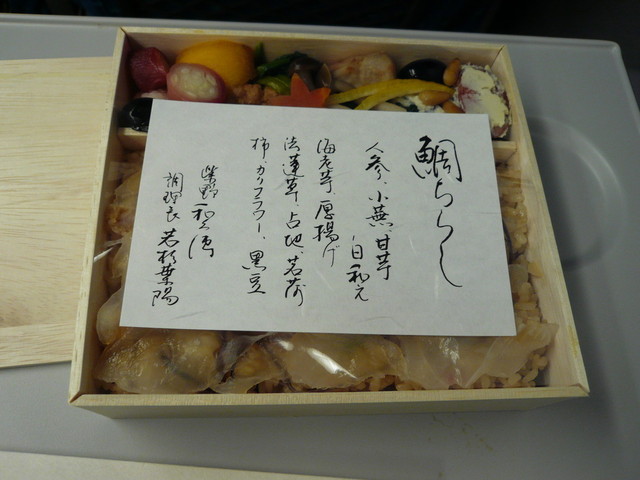 鯛ちらし
人参、小蕪、甘芋
白和え
海老芋、厚揚げ
法蓮草、占地、茗荷
柿、カリフラワー、黒豆
紫野 和久傳
調理長 若杉葉陽